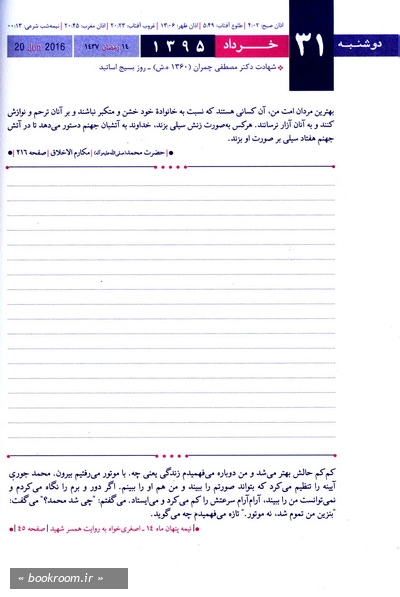 اذان صبح: ۴:۰۲ | طلوع آفتاب: ۵:۴۹ | اذان ظهر: ۱۳:۰۶ | غروب آفتاب: ۲۰:۲۳ | اذان مغرب: ۲۰:۴۵ | نیمه‌شب شرعی: ۰۰:۱۳
دوشنبه ۳۱ خرداد ۱۳۹۵ ۱۴ رمضان ۱۴۳۷ 20 Jun 2016
شهادت دکتر مصطفی چمران (۱۳۶۰ ه.ش) ـ روز بسیج اساتید
بهترین مردان امت من، آن کسانی هستند که نسبت به خانوادهٔ خود خشن و متکبر نباشند و بر آنان ترحم و نوازش
کنند و به آنان آزار نرسانند. هرکس به‌صورت زنش سیلی بزند، خداوند به آتشبان جهنم دستور می‌دهد تا در آتش
جهنم هفتاد سیلی بر صورت او بزند.
| حضرت محمد | مکارم الاخلاق | صفحه ۲۱۶ |
کم‌کم حالش بهتر می‌شد و من دوباره می‌فهمیدم زندگی یعنی چه. با موتور می‌رفتیم بیرون. محمد جوری
آیینه را تنظیم می‌کرد که بتواند صورتم را ببیند و من هم او را ببینم. اگر دور و برم را نگاه می‌کردم و
نمی‌توانست من را ببیند، آرام‌آرام سرعتش را کم می‌کرد و می‌ایستاد. می‌گفتم: "چی شد محمد؟" می‌گفت:
"بنزین من تموم شد، نه موتور." تازه می‌فهمیدم چه می‌گوید.
| نیمه پنهان ماه ۱۴ ـ اصغری‌خواه به روایت همسر شهید | صفحه ۴۵ |
« bookroom.ir »